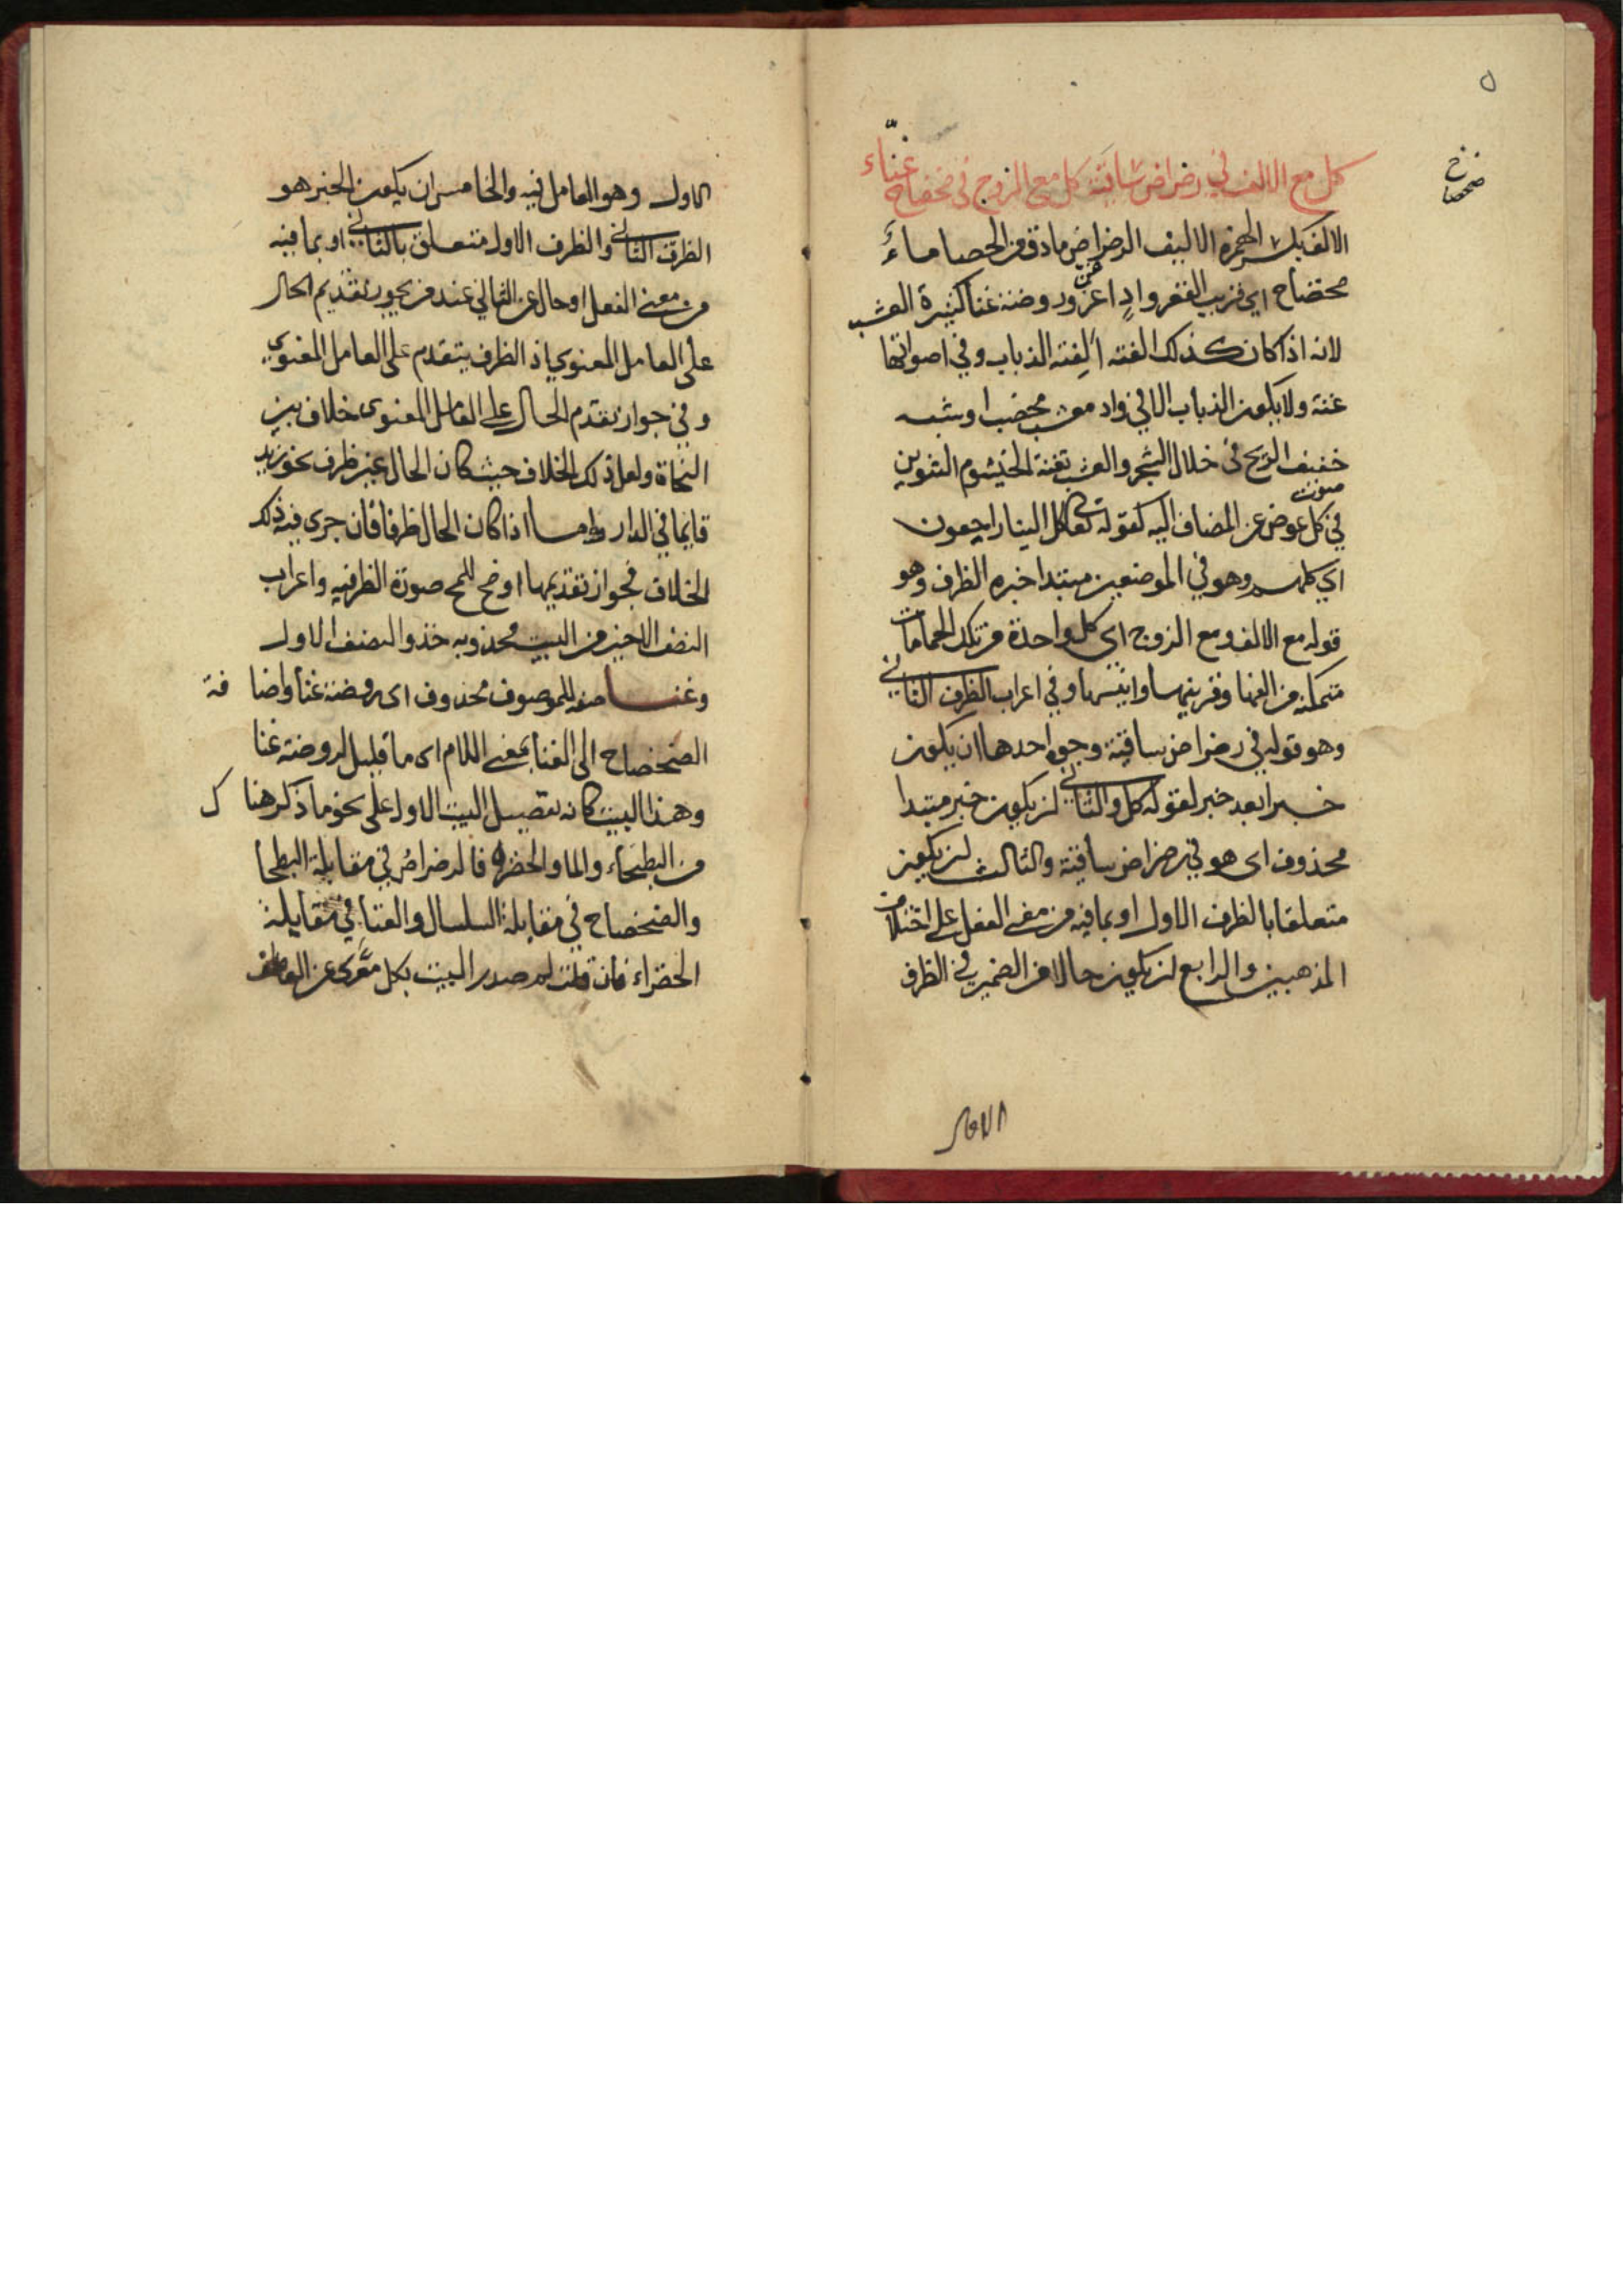 ٥
كل مع الالف في رضراض ساقية كل مع الزوج في ضحضاح غنّاء
ضحضاح
الالف بكسر الهمزة الاليف الرضراض ما دق من الحصا ماءً
ضحضاح اي قريب القعر واد اغن وروضة غنا كثيرة العشب
لانه اذا كان كذلك الفته الذباب وفي اصواتها
غنة ولا يكون الذباب الا في واد معشب مخصب او شبه
حفيف الريح في خلال الشجر والعشب بغنة الخيشوم التنوين
صوت
في كل عوض عن المضاف اليه كقوله تعالى كل الينا راجعون
اي كلهم وهو في الموضعين مبتدا خبره الظرف وهو
قوله مع الالف ومع الزوج اي كل واحدة من تلك الحمامات
متمكنة من الغنا وقرينها وانيسها وفي اعراب الظرف الثاني
وهو قوله في رضراض ساقية وجوه احدها ان يكون
خبرا بعد خبر لقوله كل والثاني ان يكون خبر مبتدا
محذوف اي هو في رضراض ساقية والثالث ان يكون
متعلقا بالظرف الاول او بما فيه من معنى الفعل على اختلاف
المذهبين والرابع ان يكون حالا من الضمير في الظرف
الاول وهو العامل فيه والخامس ان يكون الخبر هو
الظرف الثاني والظرف الاول متعلق بالثاني او بما فيه
من معنى الفعل او حال عن الثاني عند من يجوز تقديم الحال
على العامل المعنوي اذ الظرف يتقدم على العامل المعنوي
وفي جواز تقدم الحال على العامل المعنوى خلاف بين
النحاة ولعل ذلك الخلاف حيث كان الحال غير ظرف نحو زيد
قايما في الدار واما اذا كان الحال ظرفا فان جرى فيه ذلك
الخلاف فجواز تقديمها اوضح للمح صورة الظرفيه واعراب
النصف الاخير من البيت محذو به حذو النصف الاول
وغنا صفه للموصوف محذوف اى روضة غنا واضا فة
الضحضاح الى الغنا بمعنى اللام اى ما قليل لروضة غنا
وهذا البيت كانه تفصيل البيت الاول على نحو ما ذكر هنا ك
من البطحاء والما والخضرة فالرضراض في مقابلة البطحا
والضحضاح في مقابلة السلسال والغنا في مقابلة
الخضراء فان قلت لم صدر البيت بكل معرّى عن العاطف